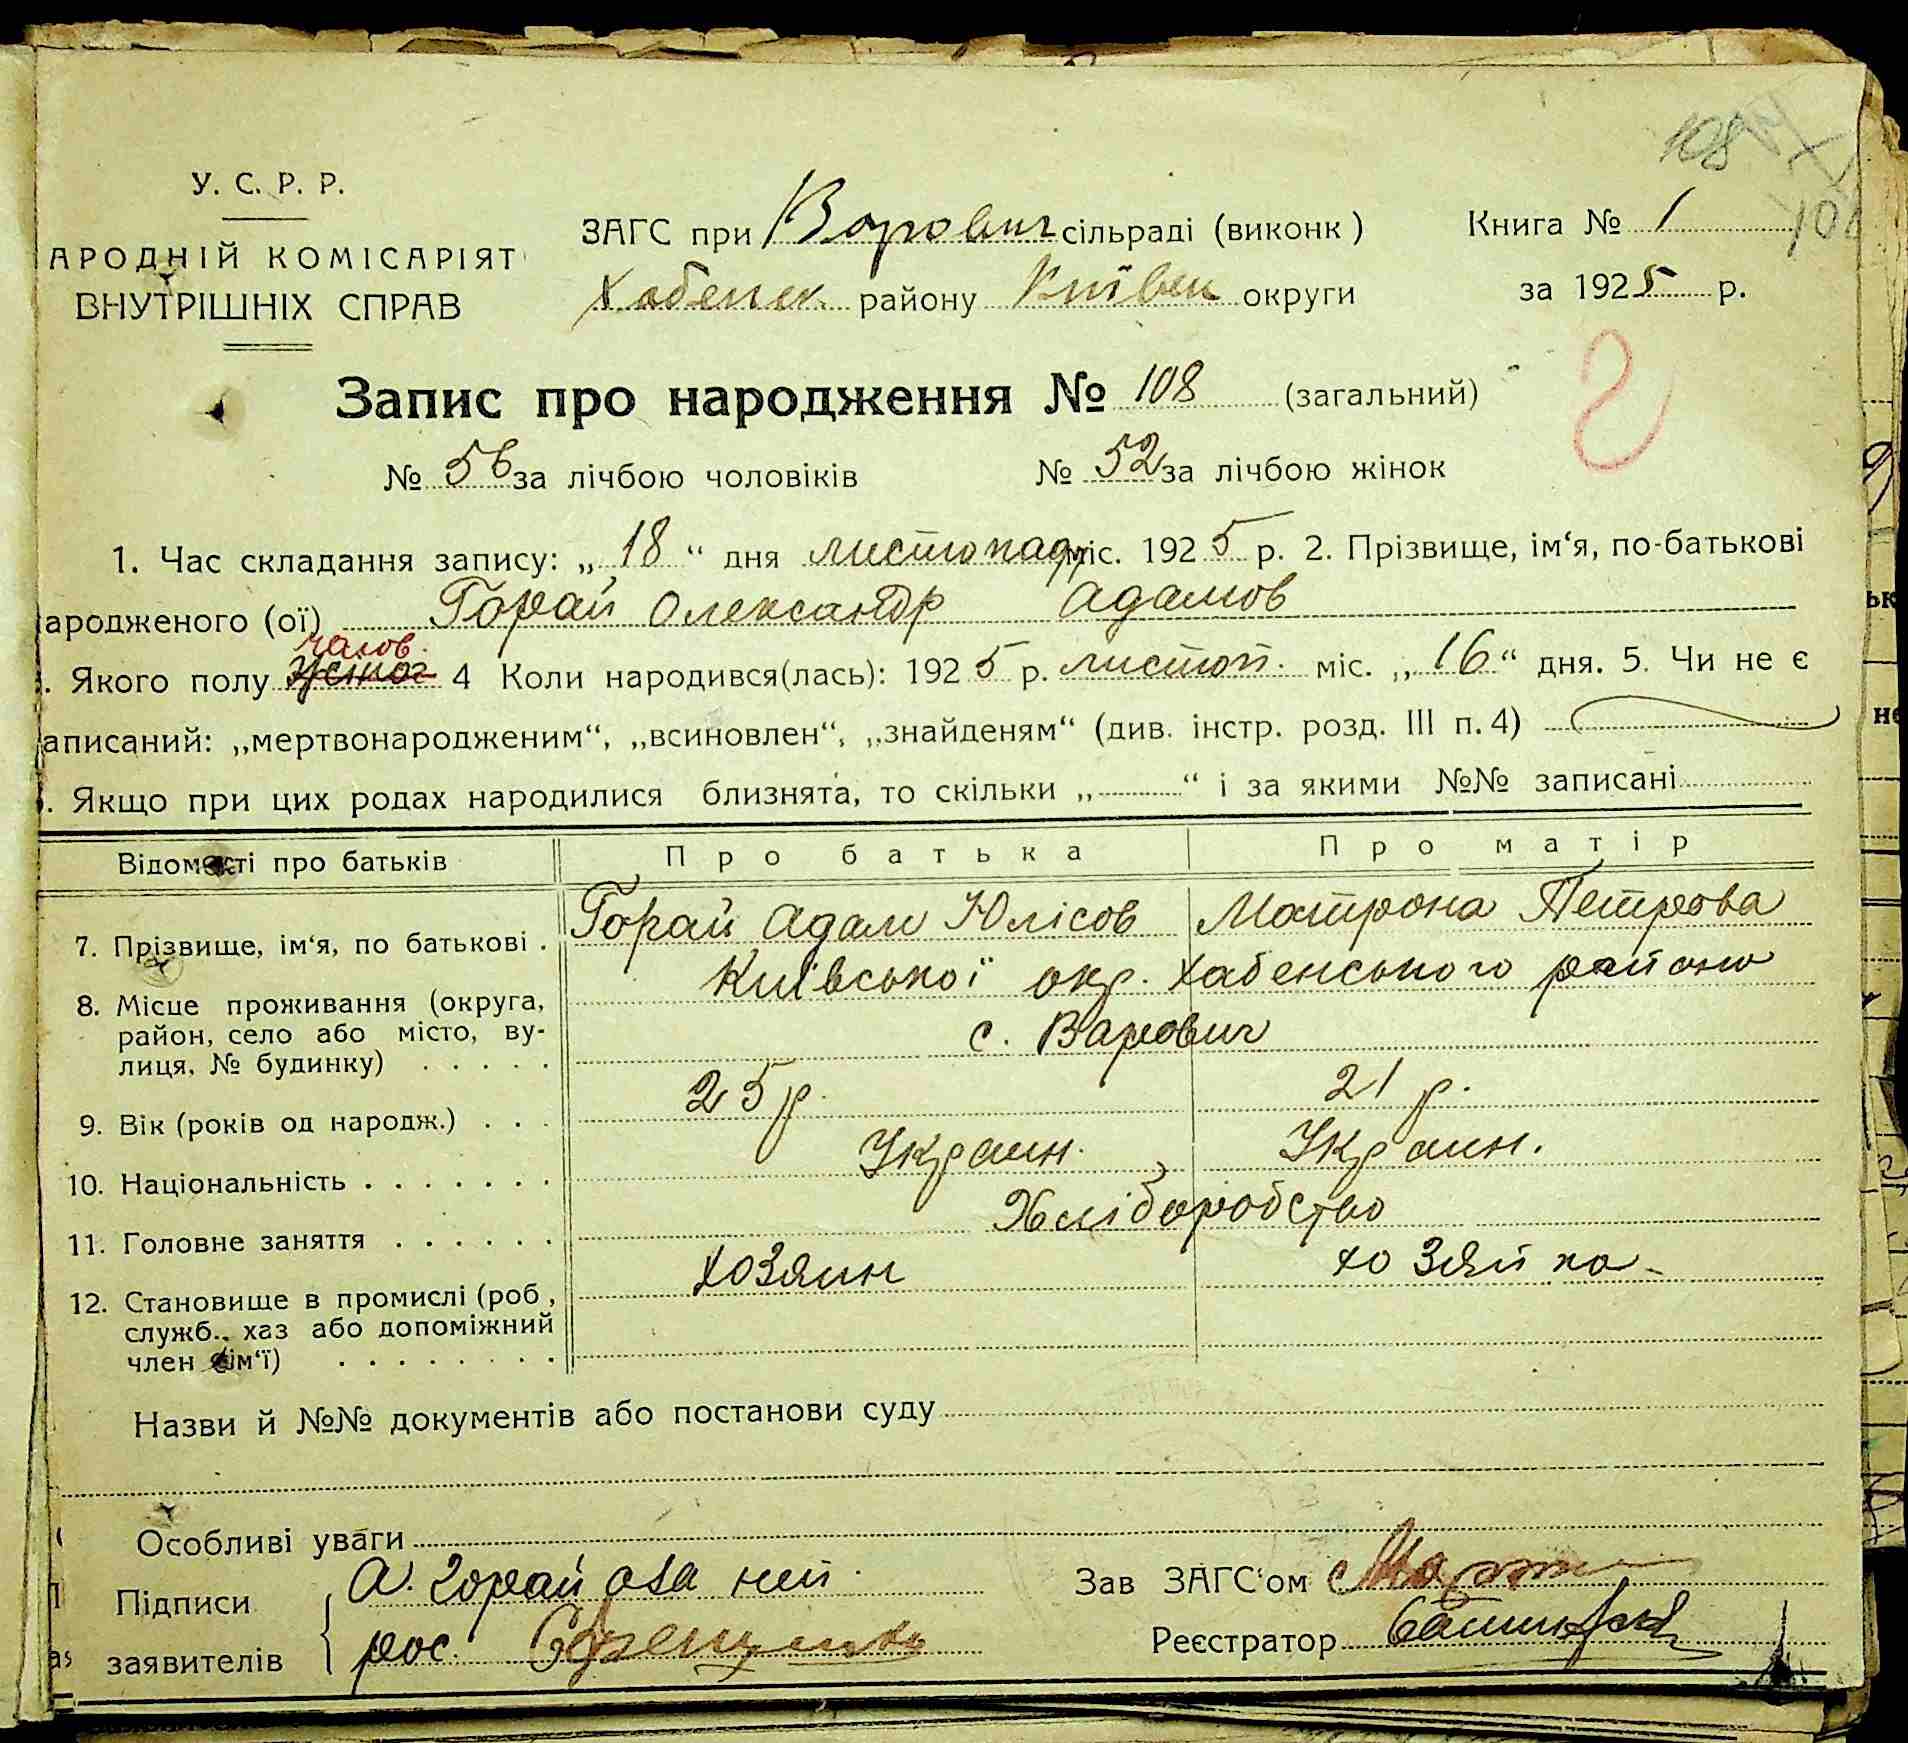 108
У. С. Р. Р.
АРОДНІЙ КОМІСАРІЯТ
ВНУТРІШНІХ СПРАВ
ЗАГС при Ворович сільраді (виконк)
Хабенськ. району Київськ округи
Книга № 1
за 1925 р.
Запис про народження № 108 (загальний)
№ 56 за лічбою чоловіків № 52 за лічбою жінок
1. Час складання запису: „18“ дня листопад міс. 1925 р. 2. Прізвище, ім‘я, по-батькові
ародженого (ої) Горай Олександр Адамов
чолов.
. Якого полу 4 Коли народився(лась): 1925 р. листоп. міс. „16“ дня. 5. Чи не є
аписаний: „мертвонародженим“, „всиновлен“, „знайденям“ (див. інстр. розд. III п. 4)
. Якщо при цих родах народилися близнята, то скільки „ “ і за якими №№ записані
Відомості про батьків Про батька Про матір
7. Прізвище, ім‘я, по батькові . Горай Адам Юлісов Мотрона Петрова
8. Місце проживання (округа, район, село або місто, вулиця, № будинку) . . . . . Київської окр. Хабенського району
с. Варович
9. Вік (років од народж.) . . . 25 р. 21 р.
10. Національність . . . . . . . Украин. Украин.
11. Головне заняття . . . . . . Хліборобство
12. Становище в промислі (роб, служб., хаз або допоміжний член сім‘ї) . . . . . . . . хозяин хозяйка
Назви й №№ документів або постанови суду
Особливі уваги
Підписи заявителів А. Горай
рос.
Зав ЗАГС‘ом
Реєстратор